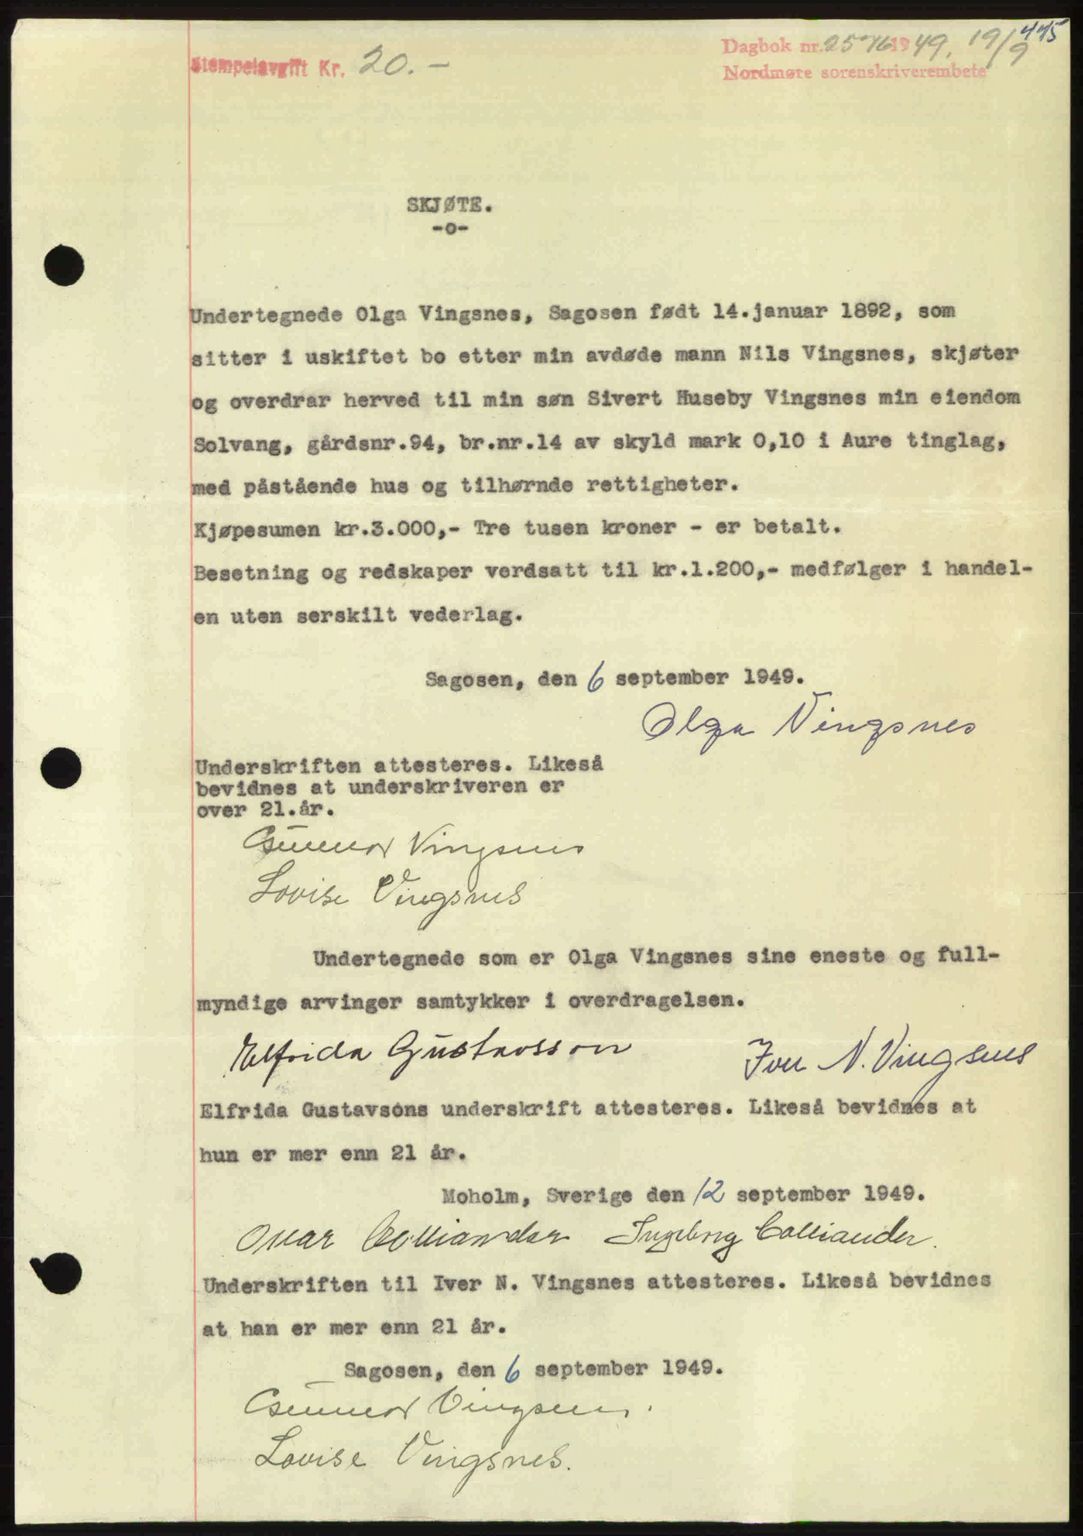 445
Stempelavgift Kr. 20.-
Dagbok nr. 2576 1949. 19/9
Nordmøre sorenskriverembete
SKJØTE.
-o-
Undertegnede Olga Vingsnes, Sagosen født 14.januar 1892, som
sitter i uskiftet bo etter min avdøde mann Nils Vingsnes, skjøter
og overdrar herved til min søn Sivert Huseby Vingsnes min eiendom
Solvang, gårdsnr.94, br.nr.14 av skyld mark 0,10 i Aure tinglag,
med påstående hus og tilhørnde rettigheter.
Kjøpesumen kr.3.000,- Tre tusen kroner - er betalt.
Besetning og redskaper verdsatt til kr.1.200,- medfølger i handel-
en uten serskilt vederlag.
Sagosen, den 6 september 1949.
Olga Vingsnes
Underskriften attesteres. Likeså
bevidnes at underskriveren er
over 21.år.
Gunnor Vingsnes
Lovise Vingsnes
Undertegnede som er Olga Vingsnes sine eneste og full-
myndige arvinger samtykker i overdragelsen.
Elfrida Gustavsson Iver N. Vingsnes
Elfrida Gustavsons underskrift attesteres. Likeså bevidnes at
hun er mer enn 21 år.
Moholm, Sverige den 12 september 1949.
Colliander Ingeborg Colliander.
Underskriften til Iver N. Vingsnes attesteres. Likeså bevidnes
at han er mer enn 21 år.
Sagosen, den 6 september 1949.
Gunnor Vingsnes.
Lovise Vingsnes.